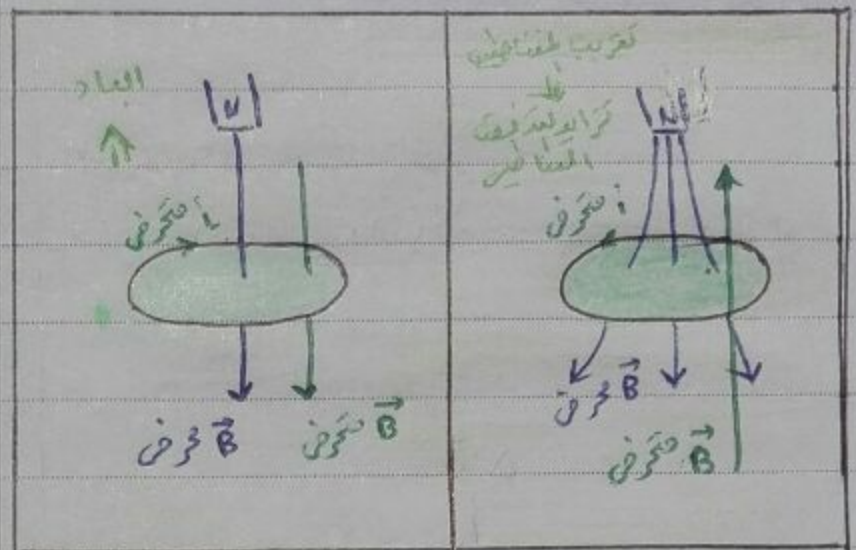 تقريب المغناطيس
تزايد التدفق
المغناطيسي
N
i متحرض
B محرض
B متحرض
ابعاد
N
i متحرض
B محرض
B متحرض